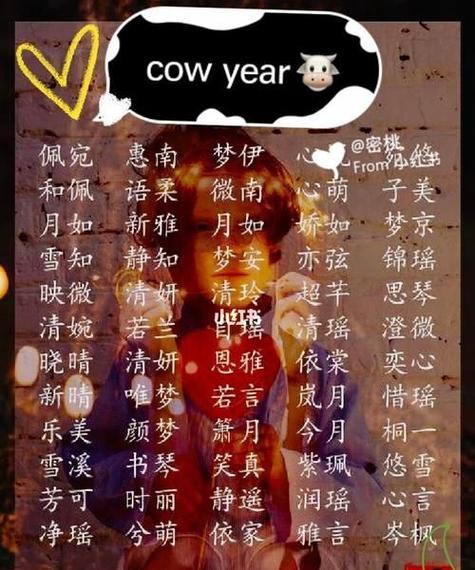 cow year
@密桃
From 小红书
佩宛 惠南 梦伊 心
和佩 语柔 微南 心萌 子美
月如 新雅 月如 娇如 梦京
雪知 静知 梦安 亦弦 锦瑶
映微 清妍 清玲 超芊 思琴
清婉 若兰 瑶 清瑶 澄微
晓晴 清妍 恩雅 依棠 奕心
新晴 唯梦 若言 岚月 惜瑶
乐美 颜梦 箫月 今月 桐一
雪溪 书琴 笑真 紫珮 悠雪
芳可 时丽 静遥 润瑶 心言
净瑶 兮萌 依家 雅言 岑枫
小红书